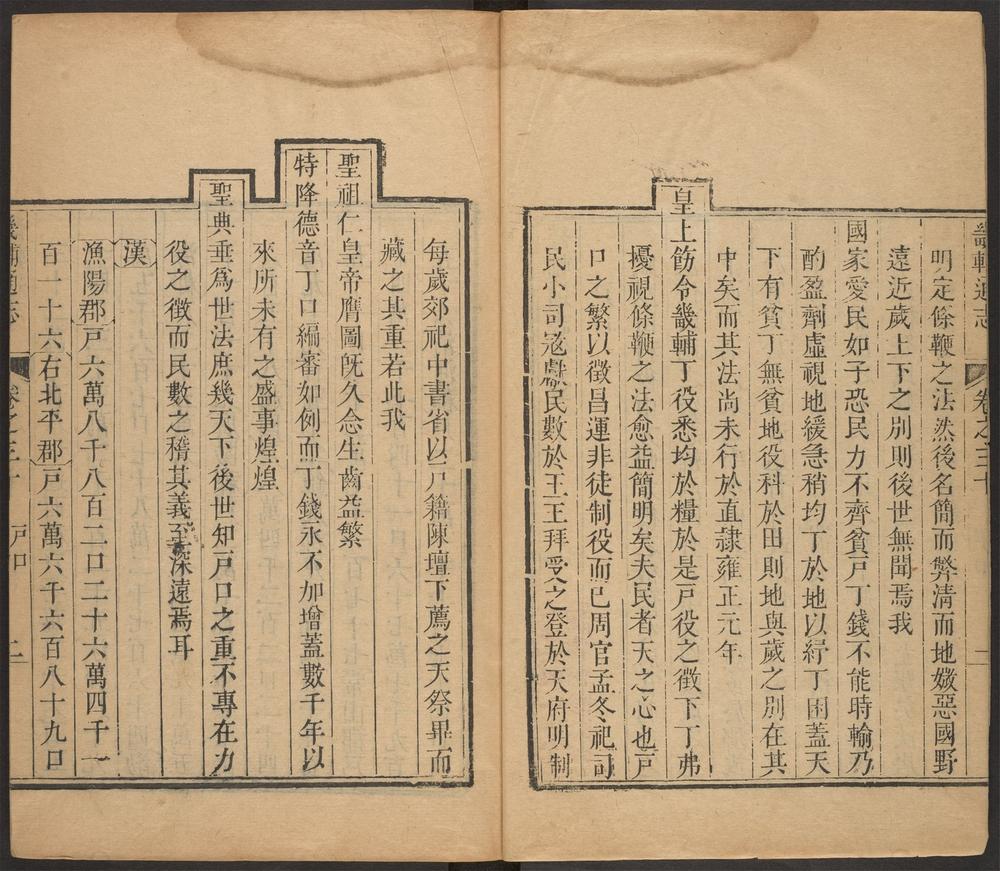 畿輔通志 卷之三十 一
明定條鞭之法然後名簡而弊清而地媺惡國野
遠近歲上下之別則後世無聞焉我
國家愛民如子恐民力不齊貧戸丁錢不能時輸乃
酌盈劑虛視地緩急稍均丁於地以紓丁困蓋天
下有貧丁無貧地役科於田則地與歲之別在其
中矣而其法尚未行於直隸雍正元年
皇上飭令畿輔丁役悉均於糧於是戸役之徵下丁弗
擾視條鞭之法愈益簡明矣夫民者天之心也戸
口之繁以徵昌運非徒制役而已周官孟冬祀司
民小司寇獻民數於王王拜受之登於天府明制
每歲郊祀中書省以戸籍陳壇下薦之天祭畢而
藏之其重若此我
聖祖仁皇帝膺圖旣久念生齒益繁
特降德音丁口編審如例而丁錢永不加增蓋數千年以
來所未有之盛事煌煌
聖典垂爲世法庶幾天下後世知戸口之重不專在力
役之徵而民數之稽其義至深遠焉耳
漢
漁陽郡戸六萬八千八百二口二十六萬四千一
百一十六右北平郡戸六萬六千六百八十九口
畿輔通志 卷之三十 戸口 二